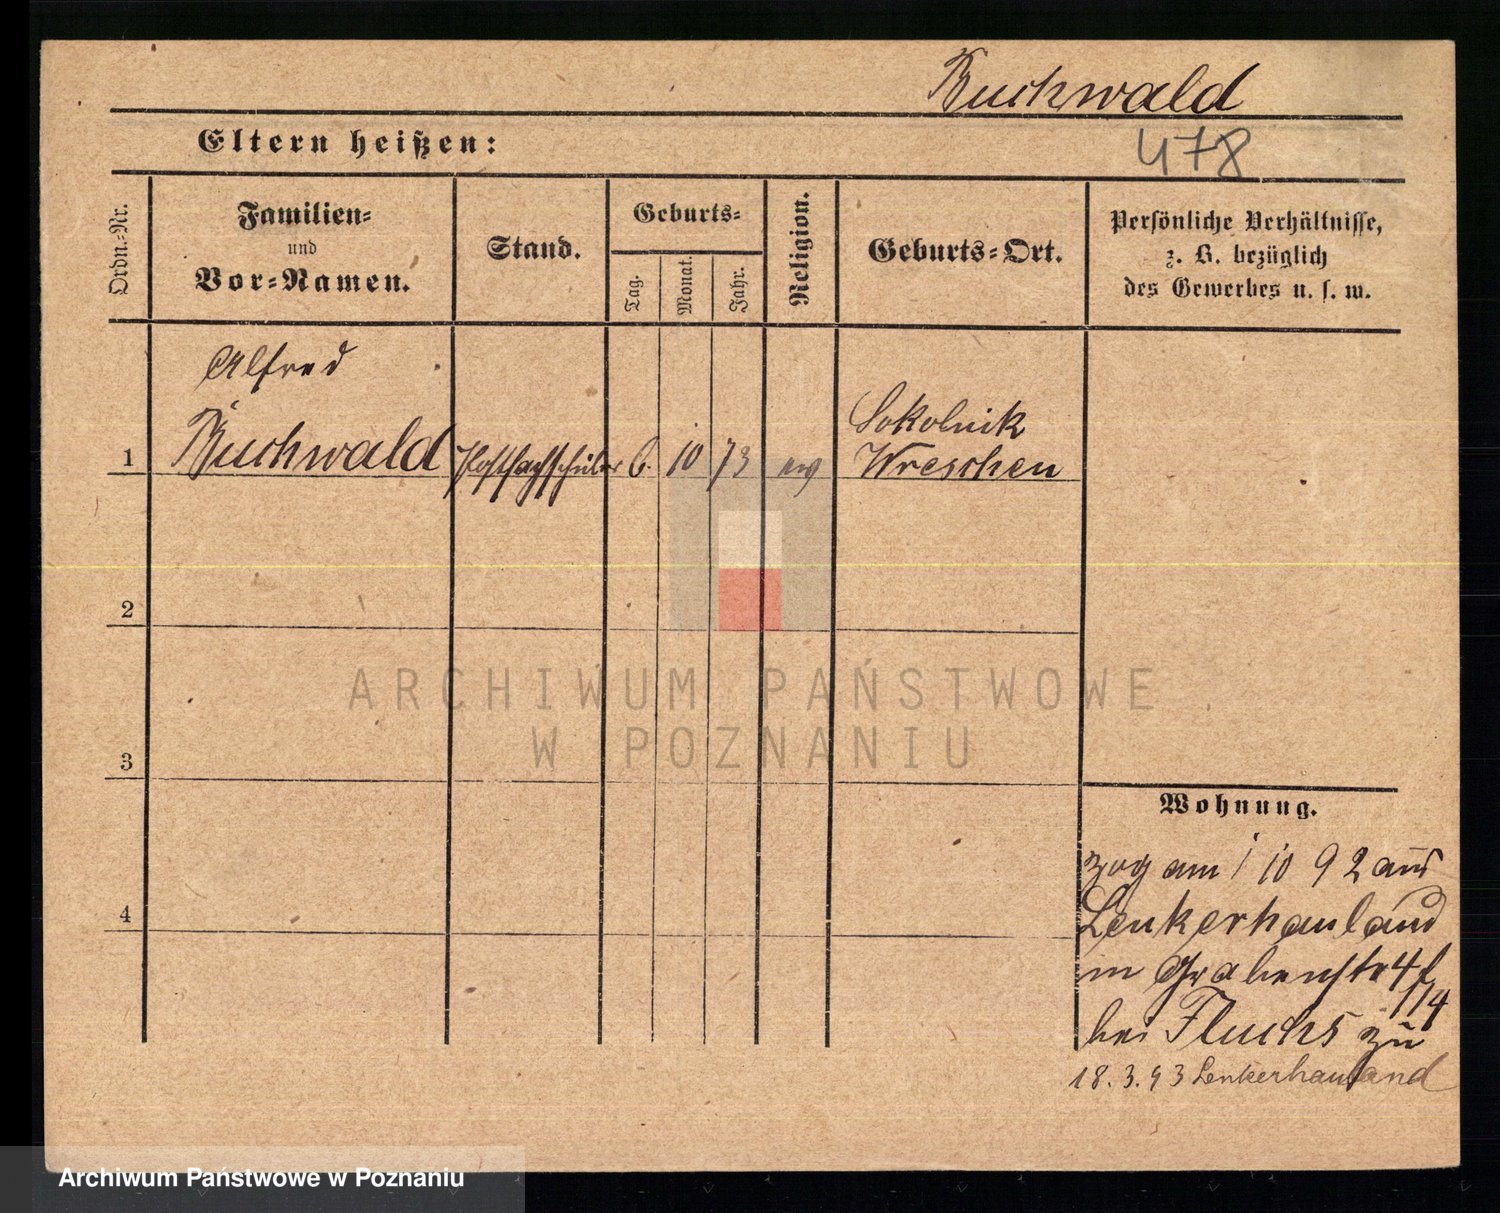 Buchwald
Eltern heißen:
478
Ordn.-Nr.
Familien-
und
Vor-Namen.
Stand.
Geburts-
Tag.
Monat.
Jahr.
Religion.
Geburts-Ort.
Persönliche Verhältnisse,
z. B. bezüglich
des Gewerbes u. s. w.
Alfred
1 Buchwald Postfachschüler 6. 10 73 ev
Sokolnik
Wreschen
2
3
4
Wohnung.
zog am 1 10 92 aus
Lenkerhauland
in Grabenstr 4
bei zu
18.3.93 Lenkerhauland
ARCHIWUM PAŃSTWOWE
W POZNANIU
Archiwum Państwowe w Poznaniu